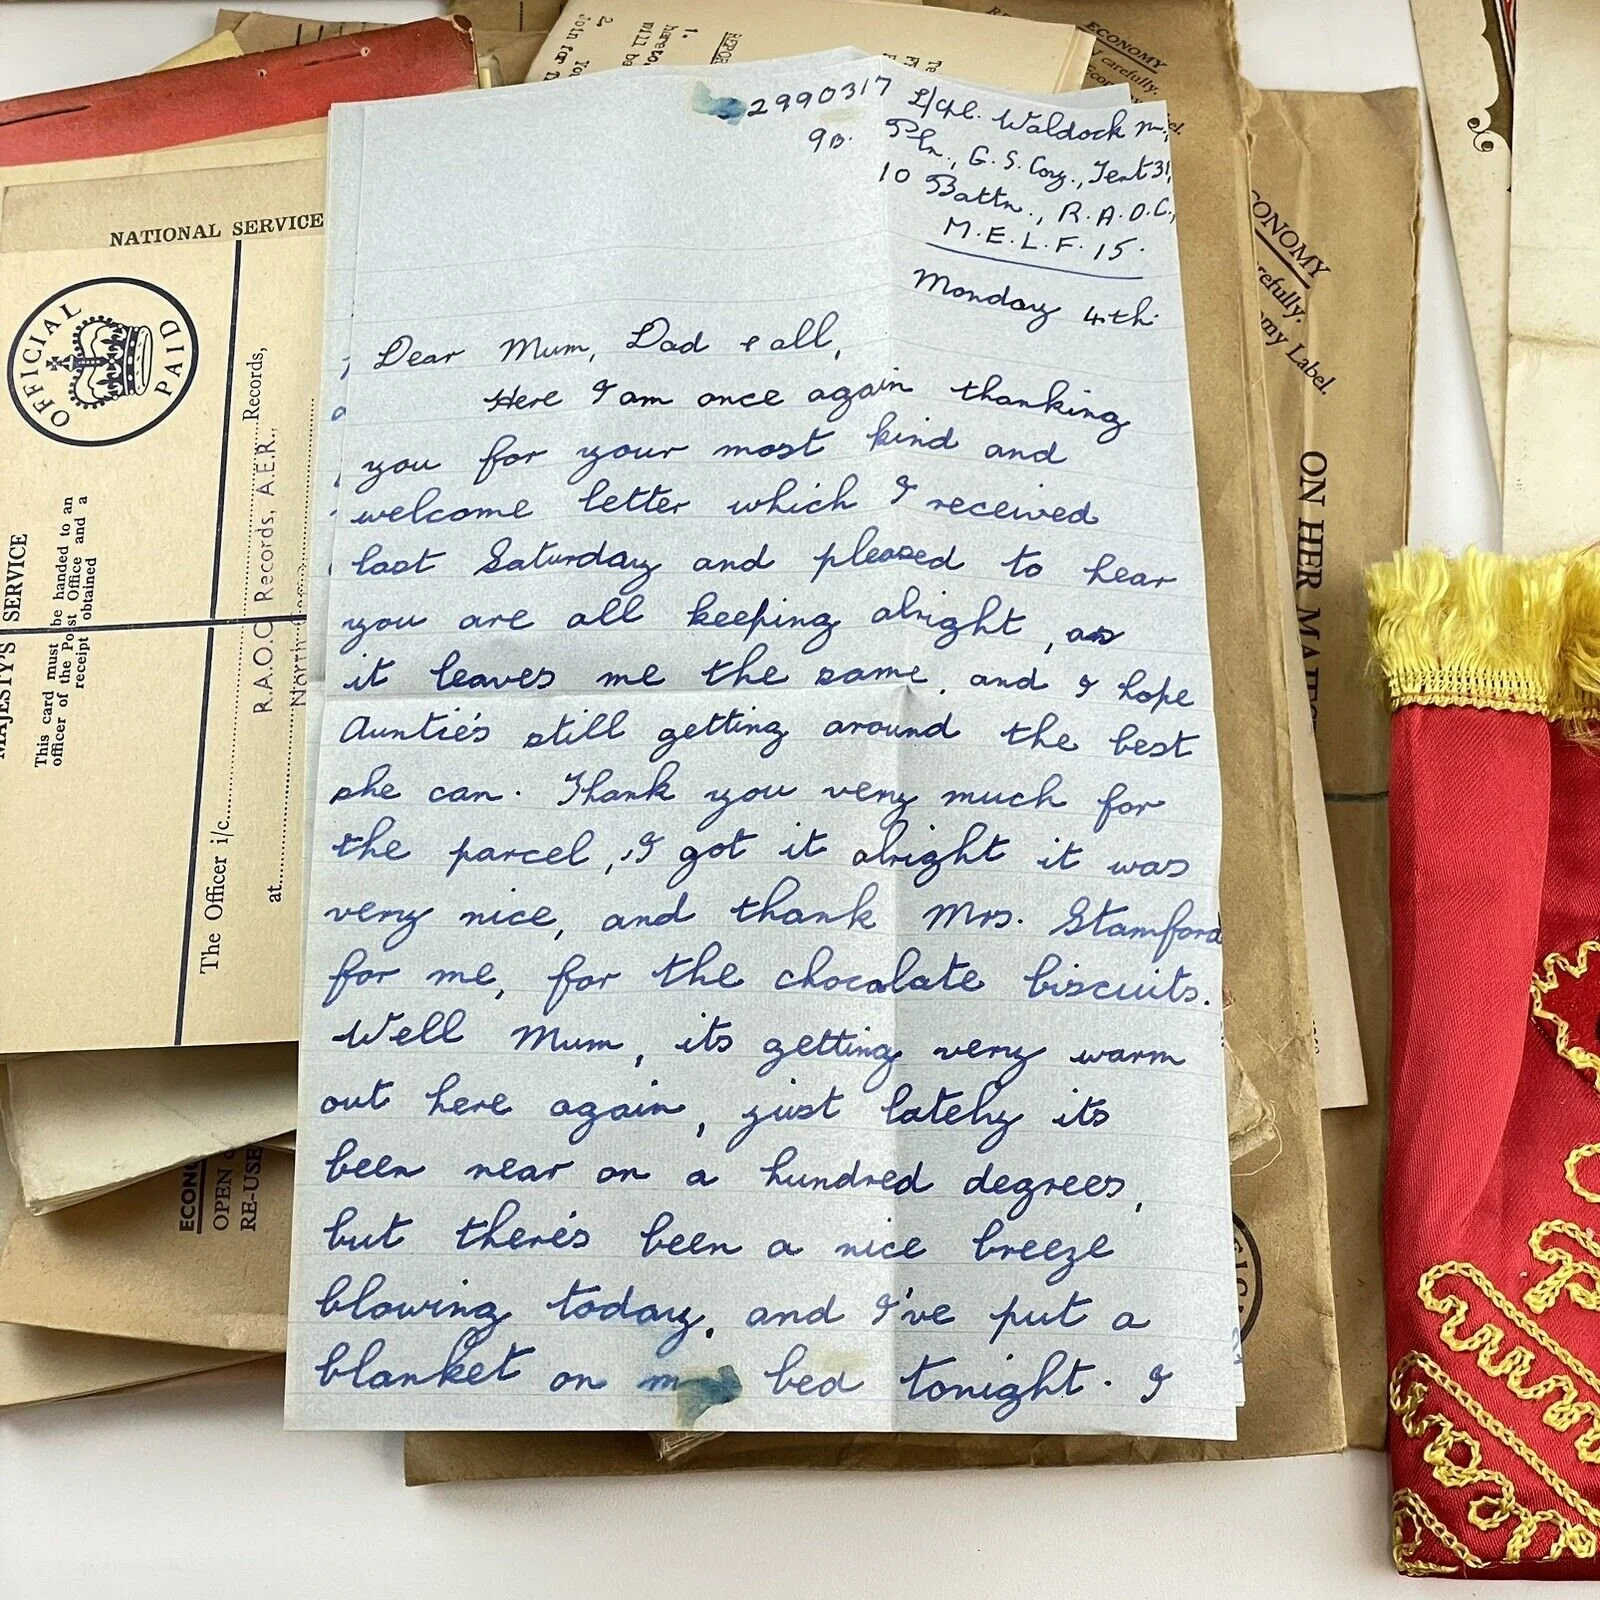 22990317 L/Cpl. Waldock M.,
9D. Pln., G.S. Coy., Tent 31,
10 Battn., R.A.O.C.,
M.E.L.F. 15.
Monday 4th
Dear Mum, Dad & all,
Here I am once again thanking
you for your most kind and
welcome letter which I received
last Saturday and pleased to hear
you are all keeping alright, as
it leaves me the same, and I hope
Auntie's still getting around the best
she can. Thank you very much for
the parcel, I got it alright it was
very nice, and thank Mrs. Stamford
for me, for the chocolate biscuits.
Well Mum, its getting very warm
out here again, just lately its
been near on a hundred degrees,
but there's been a nice breeze
blowing today, and I've put a
blanket on bed tonight. I
NATIONAL SERVICE
OFFICIAL PAID
MAJESTY'S SERVICE
This card must be handed to an
officer of the Post Office and a
receipt obtained
The Officer i/c. Records,
R.A.O.C Records, A.E.R.,
at
North
ECONOMY
carefully.
ECONOMY
Label.
ON HER
OPEN
RE-USE